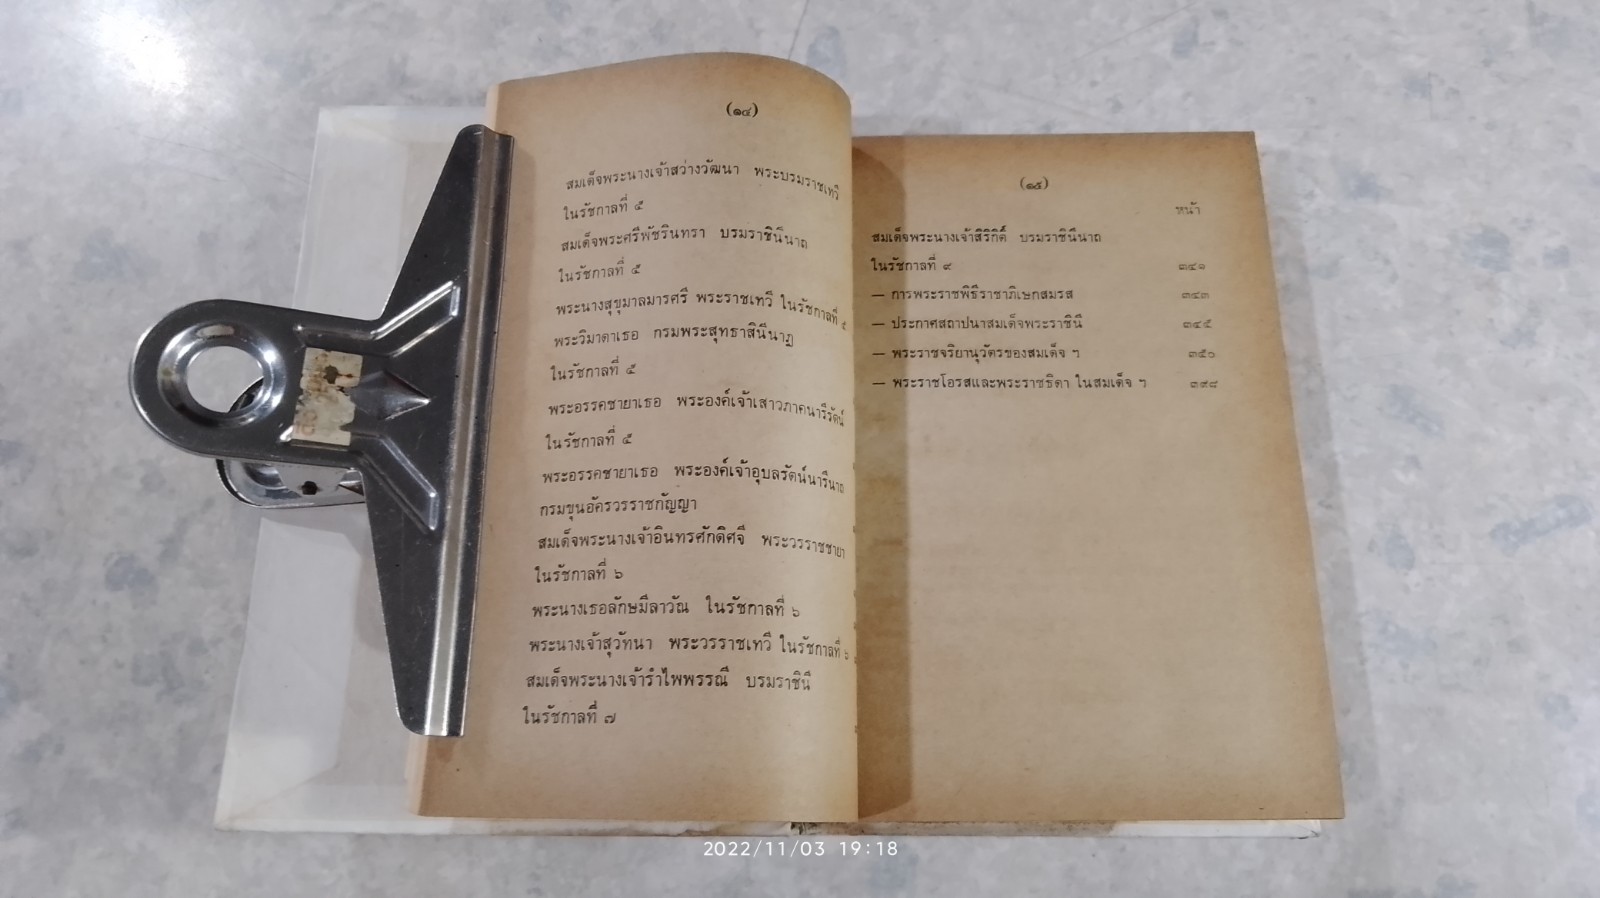 (๑๔)
สมเด็จพระนางเจ้าสว่างวัฒนา พระบรมราชเทวี
ในรัชกาลที่ ๕
สมเด็จพระศรีพัชรินทรา บรมราชินีนาถ
ในรัชกาลที่ ๕
พระนางสุขุมาลมารศรี พระราชเทวี ในรัชกาลที่ ๕
พระวิมาดาเธอ กรมพระสุทธาสินีนาฏ
ในรัชกาลที่ ๕
พระอรรคชายาเธอ พระองค์เจ้าเสาวภาคนารีรัตน์
ในรัชกาลที่ ๕
พระอรรคชายาเธอ พระองค์เจ้าอุบลรัตน์นารีนาถ
กรมขุนอัครวรราชกัญญา
สมเด็จพระนางเจ้าอินทรศักดิศจี พระวรราชชายา
ในรัชกาลที่ ๖
พระนางเธอลักษมีลาวัณ ในรัชกาลที่ ๖
พระนางเจ้าสุวัทนา พระวรราชเทวี ในรัชกาลที่ ๖
สมเด็จพระนางเจ้ารำไพพรรณี บรมราชินี
ในรัชกาลที่ ๗
(๑๕)
หน้า
สมเด็จพระนางเจ้าสิริกิติ์ บรมราชินีนาถ
ในรัชกาลที่ ๙ ๓๔๑
— การพระราชพิธีราชาภิเษกสมรส ๓๔๓
— ประกาศสถาปนาสมเด็จพระราชินี ๓๔๕
— พระราชจริยานุวัตรของสมเด็จ ฯ ๓๕๐
— พระราชโอรสและพระราชธิดา ในสมเด็จ ฯ ๓๙๘
2022/11/03 19:18